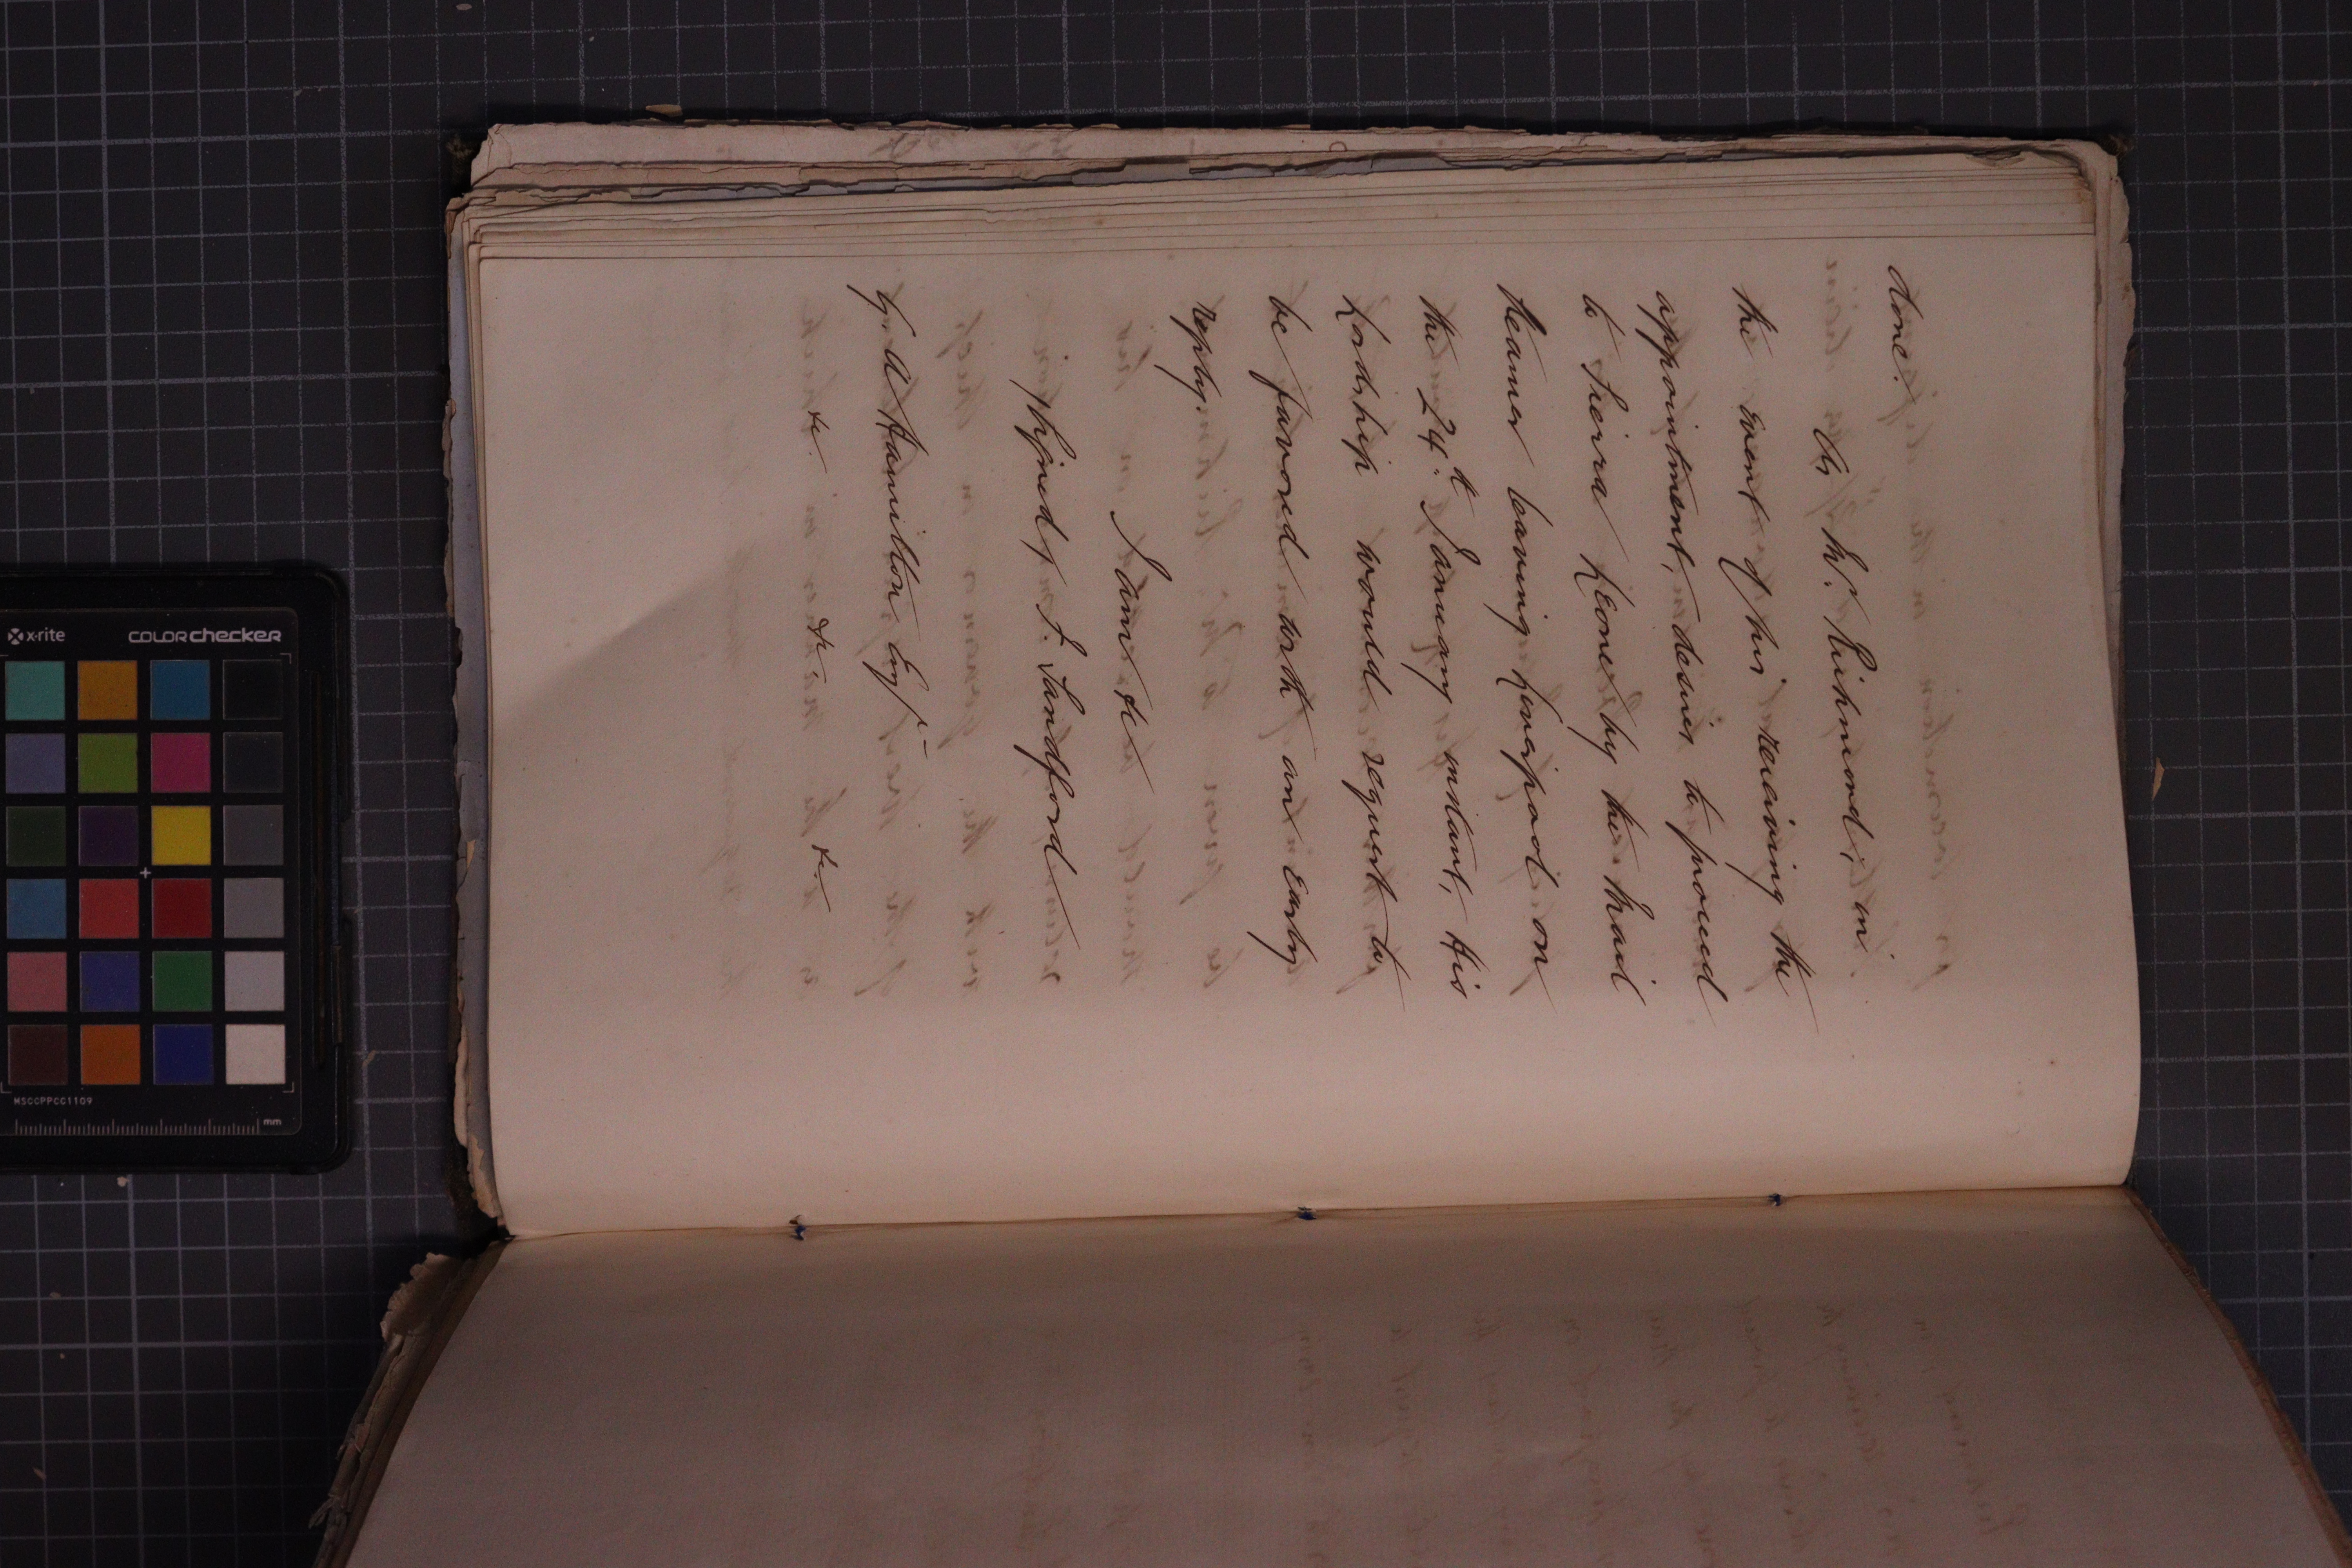 done.
As Mr. Richmond, in
the event of his receiving the
appointment, desires to proceed
to Sierra Leone by the Mail
Steamer leaving Liverpool on
the 24th. January instant, His
Lordship would request to
be favored with an early
reply.
I am &c
/Signed/ F. Sandford
G. A. Hamilton Esqr
&c. &c. &c.
x-rite colorchecker
MSCCPPCC1109
mm